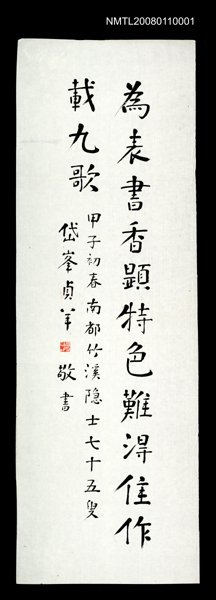 NMTL20080110001
為表書香顕特色難得佳作
載九歌
甲子初春南都竹溪隐士七十五叟
岱峯貞羊
敬書